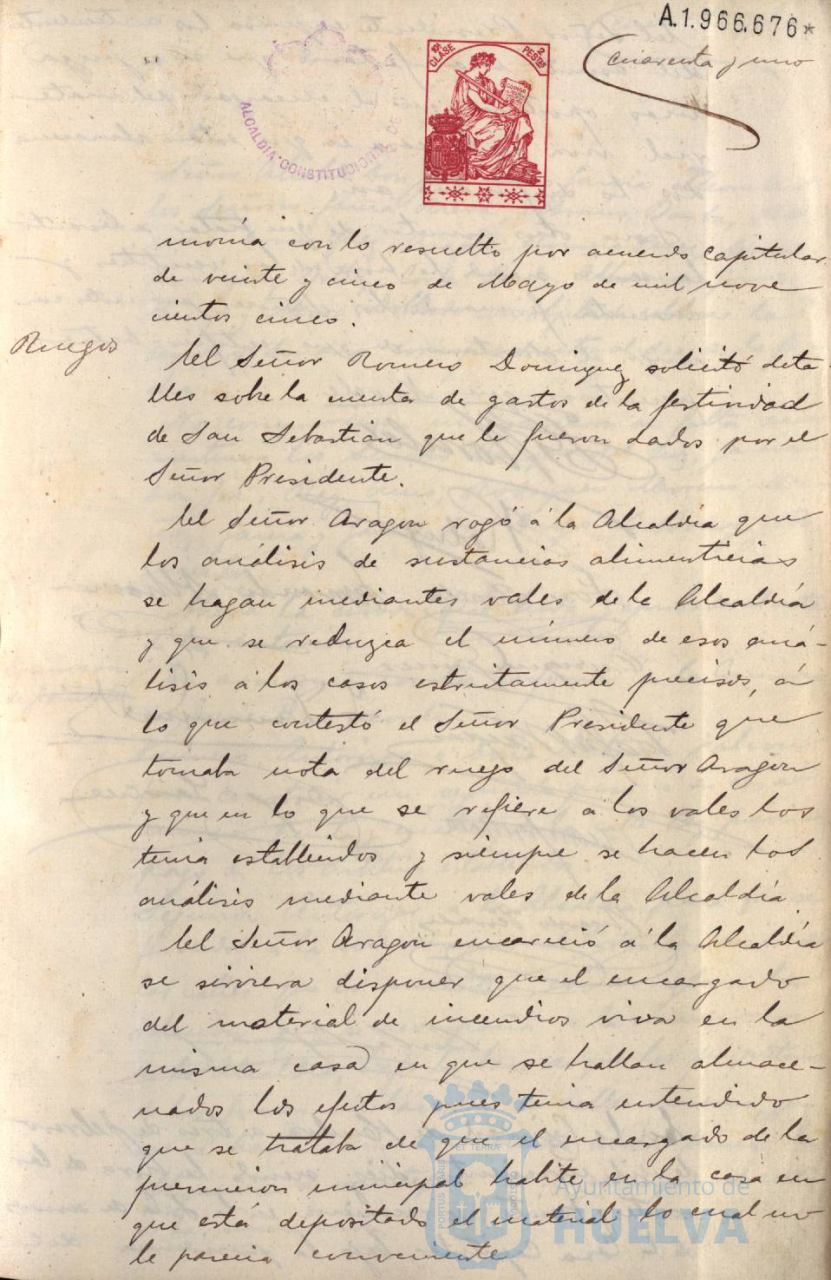 A.1.966.676*
cuarenta y uno
10ª CLASE
2 PESETAS
ALCALDIA CONSTITUCIONAL DE
monía con lo resuelto por acuerdo capitular
de veinte y cinco de Mayo de mil nove
cientos cinco.
Ruegos
El Señor Romero Dominguez solicitó deta-
lles sobre la cuenta de gastos de la festividad
de San Sebastian que le fueron dados por el
Señor Presidente.
El Señor Aragon rogó á la Alcaldía que
los análisis de sustancias alimenticias
se hagan mediantes vales de la Alcaldía
y que se reduzca el número de esos aná-
lisis á los casos estrictamente precisos, á
lo que contestó el Señor Presidente que
tomaba nota del ruego del Señor Aragon
y que en lo que se refiere á los vales los
tenia establecidos y siempre se hacen los
análisis mediante vales de la Alcaldía
El Señor Aragon encareció á la Alcaldía
se sirviera disponer que el encargado
del material de incendios viva en la
misma casa en que se hallan almace-
nados los efectos pues tenia entendido
que se trataba de que el encargado de la
municipal habite en la casa en
que está depositado el material lo cual no
le parecia conveniente
Ayuntamiento de
HUELVA